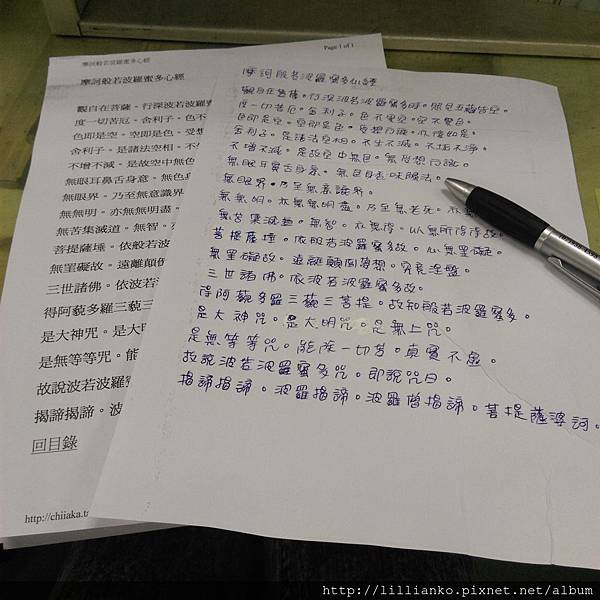 摩訶般若波羅蜜多心經
Page 1 of 1
摩訶般若波羅蜜多心經
觀自在菩薩。行深波若波羅蜜
度一切苦厄。舍利子。色不
色即是空。空即是色。受想
舍利子。是諸法空相。不
不增不減。是故空中無色
無眼耳鼻舌身意。無色
無眼界。乃至無意識界
無無明。亦無無明盡。
無苦集滅道。無智。
菩提薩埵。依般若波
無罣礙故。遠離顛倒
三世諸佛。依波若波
得阿藐多羅三藐三
是大神咒。是大
是無等等咒。能
故說波若波羅蜜
揭諦揭諦。波
回目錄
http://chiiaka.ta
摩訶般若波羅蜜多心經
觀自在菩薩。行深波若波羅蜜多時。照見五蘊皆空。
度一切苦厄。舍利子。色不異空。空不異色。
色即是空。空即是色。受想行識。亦復如是。
舍利子。是諸法空相。不生不滅。不垢不淨。
不增不減。是故空中無色。無受想行識。
無眼耳鼻舌身意。無色身香味觸法。
無眼界。乃至無意識界。
無無明。亦無無明盡。乃至無老死。亦無
無苦集滅道。無智。亦無得。以無所得故。
菩提薩埵。依般若波羅蜜多故。心無罣礙。
無罣礙故。遠離顛倒夢想。究竟涅盤。
三世諸佛。依波若波羅蜜多故。
得阿藐多羅三藐三菩提。故知般若波羅蜜多。
是大神咒。是大明咒。是無上咒。
是無等等咒。能除一切苦。真實不虛。
故說波若波羅蜜多咒。即說咒曰。
揭諦揭諦。波羅揭諦。波羅僧揭諦。菩提薩婆訶。
http://lillianko.pixnet.net/album